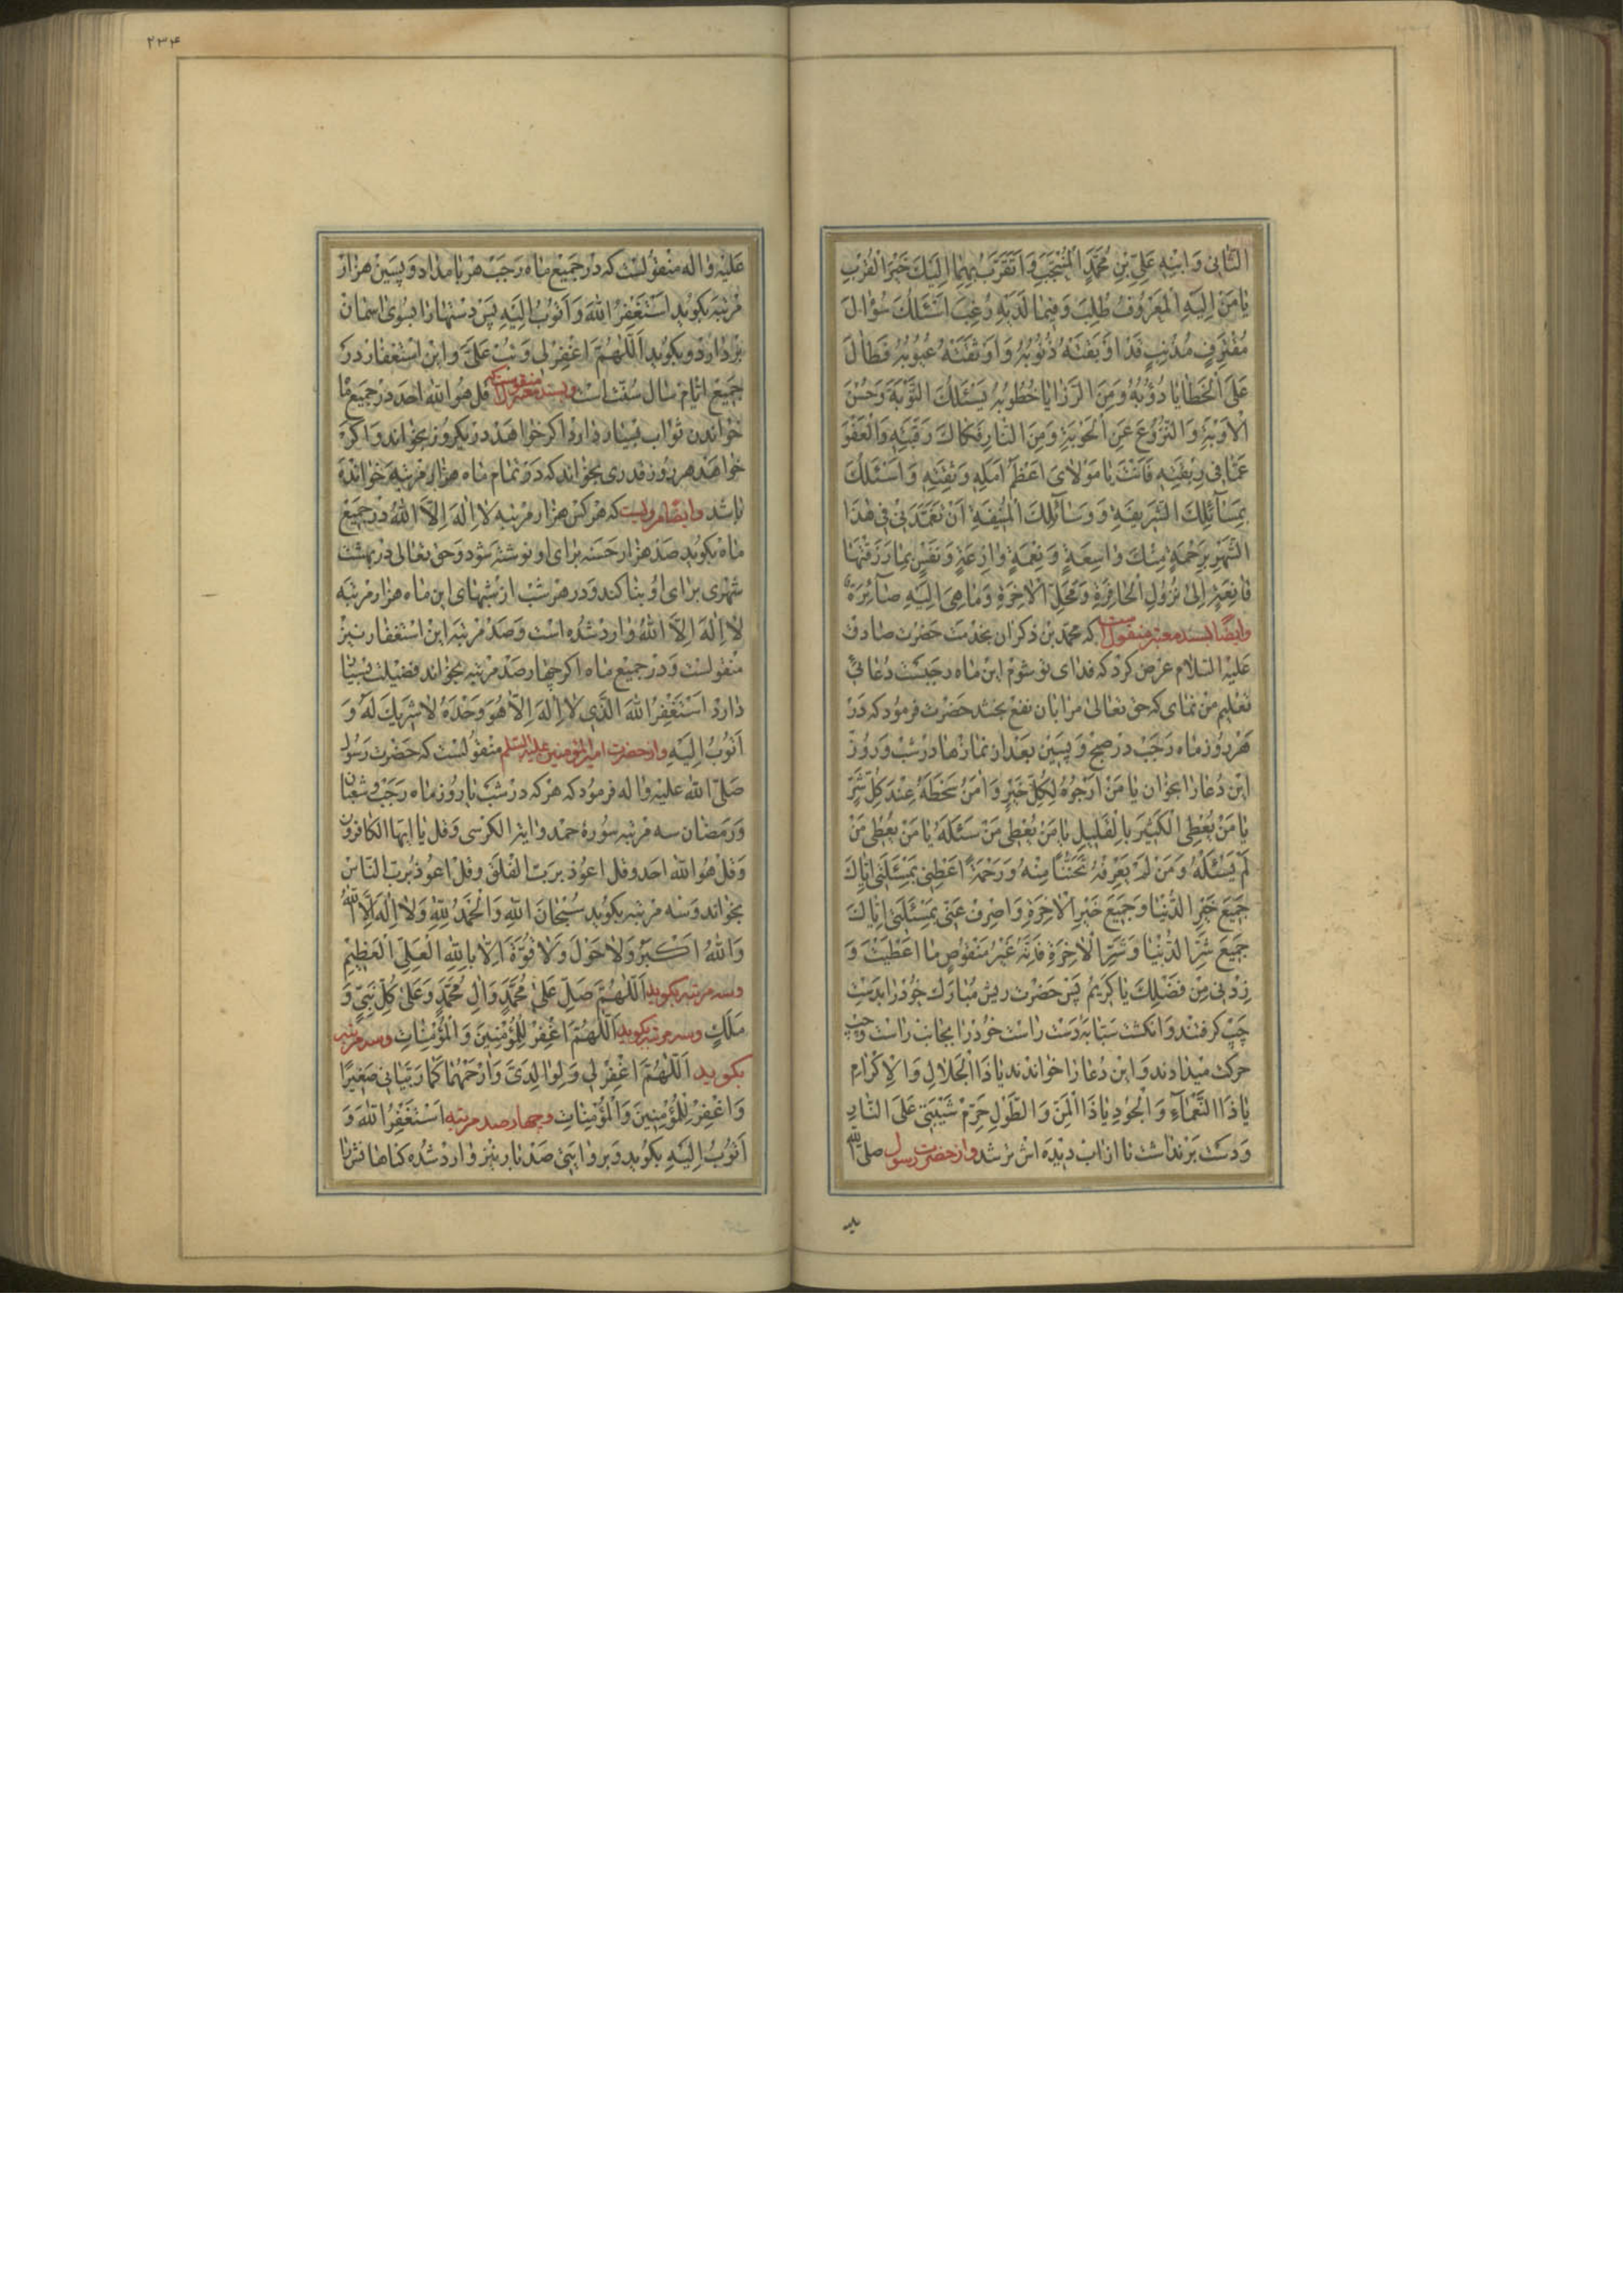 الثَّانِي وَابْنِهِ عَلِيِّ بْنِ مُحَمَّدٍ الْمُنْتَجَبِ وَأَتَقَرَّبُ بِهِمَا إِلَيْكَ خَيْرَ الْقُرَبِ
يَا مَنْ إِلَيْهِ الْمَعْرُوفُ طُلِبَ وَفِيمَا لَدَيْهِ رُغِبَ أَسْئَلُكَ سُؤَالَ
مُقْتَرِفٍ مُذْنِبٍ قَدْ أَوْبَقَتْهُ ذُنُوبُهُ وَأَوْثَقَتْهُ عُيُوبُهُ فَطَالَ
عَلَى الْخَطَايَا دُؤُبُهُ وَمِنَ الرَّزَايَا خُطُوبُهُ يَسْئَلُكَ التَّوْبَةَ وَحُسْنَ
الْأَوْبَةِ وَالنُّزُوعَ عَنِ الْحَوْبَةِ وَمِنَ النَّارِ فَكَاكَ رَقَبَتِهِ وَالْعَفْوَ
عَمَّا فِي رِبْقَتِهِ فَأَنْتَ يَا مَوْلَايَ أَعْظَمُ أَمَلِهِ وَثِقَتِهِ وَأَسْئَلُكَ
بِمَسَآئِلِكَ الشَّرِيفَةِ وَوَسَآئِلِكَ الْمُنِيفَةِ أَنْ تَتَغَمَّدَنِي فِي هٰذَا
الشَّهْرِ بِرَحْمَةٍ مِنْكَ وَاسِعَةٍ وَنِعْمَةٍ وَازِعَةٍ وَنَفْسٍ بِمَا رَزَقْتَهَا
قَانِعَةٍ إِلَى نُزُولِ الْحَافِرَةِ وَمَحَلِّ الْآخِرَةِ وَمَا هِيَ إِلَيْهِ صَآئِرَةٌ
وایضًا بسند معتبر منقول است که محمد بن ذکران بخدمت حضرت صادق
علیه السلام عرض کرد که فدای تو شوم این ماه رجبست دعائی
تعلیم من نمای که حق تعالی مرا بان نفع بخشد حضرت فرمود که در
هر روز ماه رجب در صبح و پسین و بعد از نمازها در شب و روز
این دعا را بخوان يَا مَنْ أَرْجُوهُ لِكُلِّ خَيْرٍ وَآمَنُ سَخَطَهُ عِنْدَ كُلِّ شَرٍّ
يَا مَنْ يُعْطِي الْكَثِيرَ بِالْقَلِيلِ يَا مَنْ يُعْطِي مَنْ سَئَلَهُ يَا مَنْ يُعْطِي مَنْ
لَمْ يَسْئَلْهُ وَمَنْ لَمْ يَعْرِفْهُ تَحَنُّنًا مِنْهُ وَرَحْمَةً أَعْطِنِي بِمَسْئَلَتِي إِيَّاكَ
جَمِيعَ خَيْرِ الدُّنْيَا وَجَمِيعَ خَيْرِ الْآخِرَةِ وَاصْرِفْ عَنِّي بِمَسْئَلَتِي إِيَّاكَ
جَمِيعَ شَرِّ الدُّنْيَا وَشَرِّ الْآخِرَةِ فَإِنَّهُ غَيْرُ مَنْقُوصٍ مَا أَعْطَيْتَ وَ
زِدْنِي مِنْ فَضْلِكَ يَا كَرِيمُ پس حضرت ریش مبارک خود را بدست
چپ گرفتند و انگشت سبابه دست راست خود را بجانب راست و چپ
حرکت میدادند و این دعا را خواندند يَا ذَا الْجَلَالِ وَالْإِكْرَامِ
يَا ذَا النَّعْمَآءِ وَالْجُودِ يَا ذَا الْمَنِّ وَالطَّوْلِ حَرِّمْ شَيْبَتِي عَلَى النَّارِ
و دست برنداشت تا از اب دیده اش تر شد و از حضرت رسول صلی الله
علیه واله منقولست که در جمیع ماه رجب هر بامداد و پسین هزار
مرتبه بکوید أَسْتَغْفِرُ اللهَ وَأَتُوبُ إِلَيْهِ پس دستها را بسوی اسمان
بردارد و بکوید اَللّٰهُمَّ اغْفِرْ لِي وَتُبْ عَلَيَّ و این استغفار در
جمیع ایام سال سنت است و بسند معتبر منقولست که قل هو الله احد در جمیع ما
خواندن ثواب بسیار دارد اکر خواهد در یکروز بخواند و اکر
خواهد هر روز قدری بخواند که در تمام ماه هزار مرتبه خوانده
باشد وایضًا مرویست که هر کس هزار مرتبه لَا إِلٰهَ إِلَّا اللهُ در جمیع
ماه بکوید صد هزار حسنه برای او نوشته شود و حق تعالی در بهشت
شهری برای او بنا کند و در هر شب از شبهای این ماه هزار مرتبه
لَا إِلٰهَ إِلَّا اللهُ وارد شده است و صد مرتبه این استغفار نیز
منقولست و در جمیع ماه اکر چهار صد مرتبه بخواند فضیلت بسیا
دارد أَسْتَغْفِرُ اللهَ الَّذِي لَا إِلٰهَ إِلَّا هُوَ وَحْدَهُ لَا شَرِيكَ لَهُ وَ
أَتُوبُ إِلَيْهِ و از حضرت امیر المؤمنین علیه السلم منقولست که حضرت رسول
صلی الله علیه واله فرمود که هر که در شب یا روز ماه رجب و شعبان
و رمضان سه مرتبه سوره حمد و ایة الکرسی و قل یا ایها الکافرون
و قل هو الله احد و قل اعوذ برب الفلق و قل اعوذ برب الناس
بخواند و سه مرتبه بکوید سُبْحَانَ اللهِ وَالْحَمْدُ لِلّٰهِ وَلَا إِلٰهَ إِلَّا اللهُ
وَاللهُ أَكْبَرُ وَلَا حَوْلَ وَلَا قُوَّةَ إِلَّا بِاللهِ الْعَلِيِّ الْعَظِيمِ
و سه مرتبه بکوید اَللّٰهُمَّ صَلِّ عَلَى مُحَمَّدٍ وَآلِ مُحَمَّدٍ وَعَلَى كُلِّ نَبِيٍّ وَ
مَلَكٍ و سه مرتبه بکوید اَللّٰهُمَّ اغْفِرْ لِلْمُؤْمِنِينَ وَالْمُؤْمِنَاتِ و سه مرتبه
بکوید اَللّٰهُمَّ اغْفِرْ لِي وَلِوَالِدَيَّ وَارْحَمْهُمَا كَمَا رَبَّيَانِي صَغِيرًا
وَاغْفِرْ لِلْمُؤْمِنِينَ وَالْمُؤْمِنَاتِ و چهار صد مرتبه أَسْتَغْفِرُ اللهَ وَ
أَتُوبُ إِلَيْهِ بکوید و بروایتی صد بار نیز وارد شده کناهانش را
۲۳۴